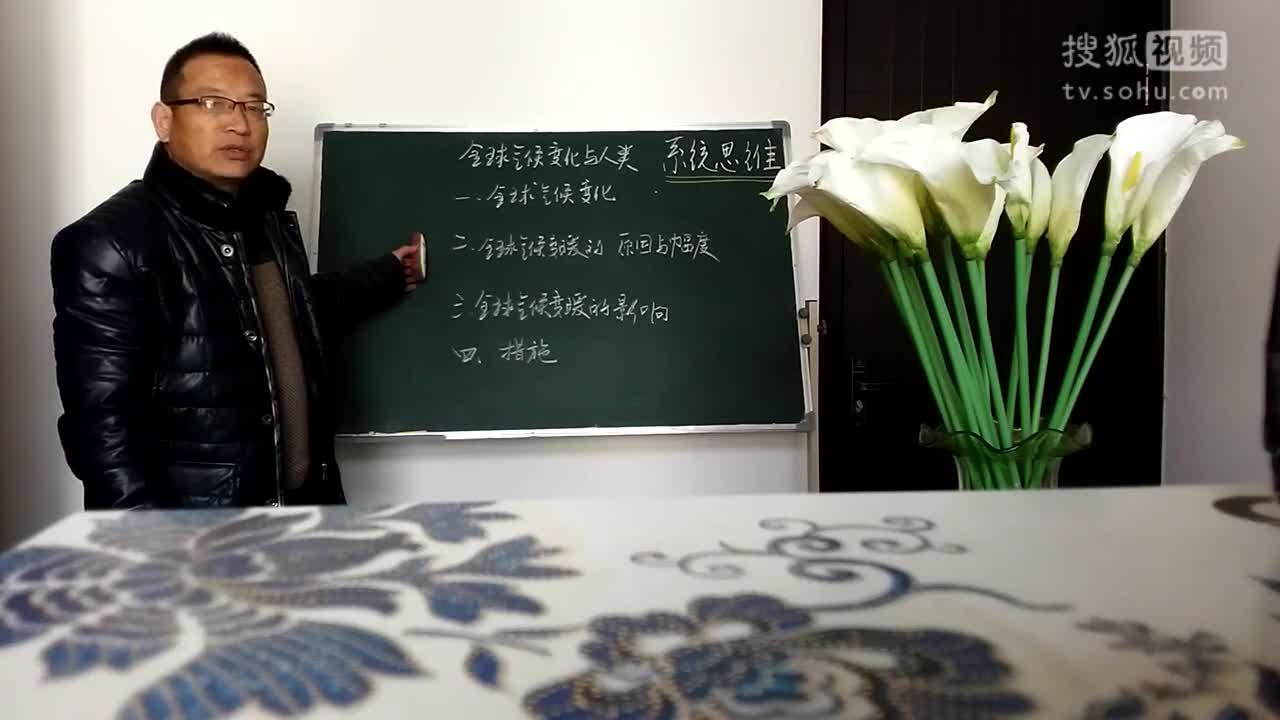 搜狐视频
tv.sohu.com
全球气候变化与人类 系统思维
一.全球气候变化
二.全球气候变暖的 原因与幅度
三.全球气候变暖的影响
四、措施